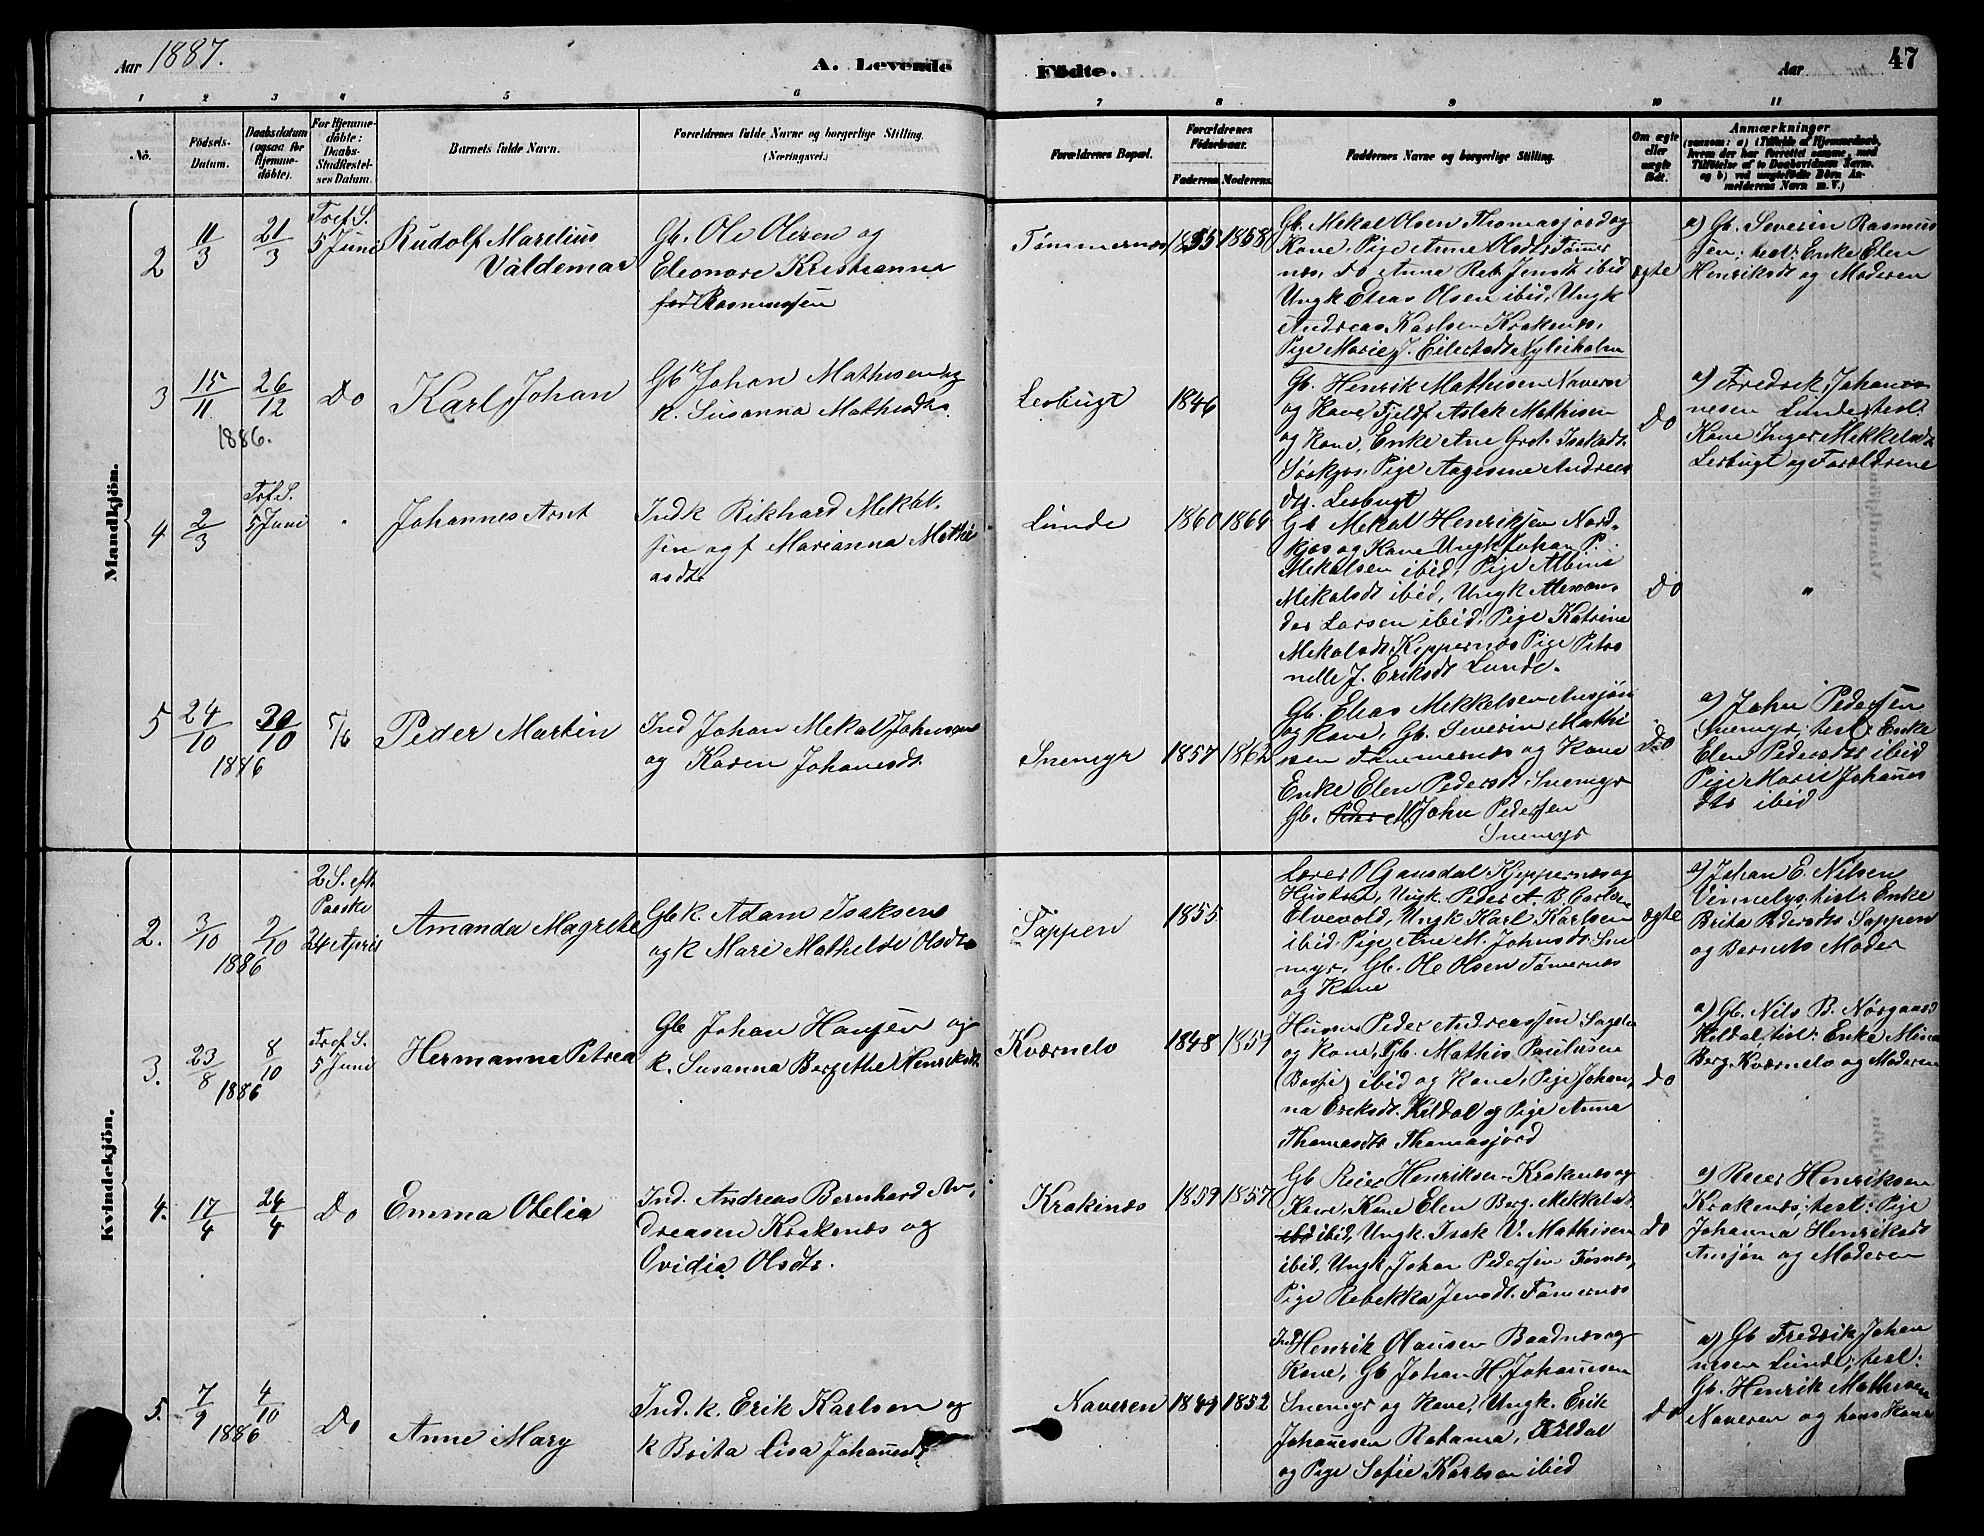 Aar 1887.
A. Levende
Födte.
Aar
47
1 2 3 4 5 6 7 8 9 10 11
No.
Födsels-
Datum.
Daabsdatum
(ogsaa for
Hjemme-
döbte).
For Hjemme-
döbte:
Daabs-
Stadfæstel-
ses Datum.
Barnets fulde Navn.
Forældrenes fulde Navne og borgerlige Stilling.
(Næringsvei.)
Forældrenes Bopæl.
Forældrenes
Födselsaar.
Faderens. Moderens.
Faddernes Navne og borgerlige Stilling.
Om ægte
eller
uægte
födt.
Anmærkninger
(saasom: a) i Tilfælde af Hjemmedaab,
hvem der har forrettet samme, med
Tilföielse af to Daabsvidners Navne.
og b) ved uægtefödte Börn An-
melderens Navn m. V.)
Mandkjön.
2
11/3
21/3
Tref. S.
5 Juni
Rudolf Marelius
Valdemar
Gb. Ole Olsen og
Eleonore Kristianna
född Rasmussen
Tömmernæs
1855
1858
Gb. Mekal Olsen Thomasjord og
Kone, Pige Anne Olsdt. Tömer
næs, do Anna Reb. Jensdt. ibid
Ungk Elias Olsen ibid, Ungk
Andreas Karlsen Krakenes,
Pige Marie J. Eilertsdt
ægte
a) Gb. Severin Rasmus
sen; test: Enke Elen
Henriksdt og Moderen
3
15/11
26/12
1886.
Do
Karl Johan
Gbr Johan Mathisen og
k. Susanna Mathisdtr.
Lesbugt
1846
Gb. Henrik Mathisen Naveren
og Kone, Fjeldf Aslak Mathisen
og Kone, Enke Ane Gret. Isaksdt.
Pige Andreas
dtr. Lesbugt
Do
a) Fredrik Johan
nesen Lunde, test:
Kone Inger Mekkelsdt.
Lesbugt og Forældrene
4
2/3
Tref. S.
5 Juni
"
Johannes Arnt
Indk Rikhard Mekal
sen og f Marianna Mathi
asdtr
Lunde
1860
1864
Gb. Mekal Henriksen Nord-
kjos og Kone Ungk Johan P.
Mekalsen ibid, Pige Albine
Mikalsdt ibid, Ungk Alexan-
der Larsen ibid. Pige Katrine
Mekalsdt. Kippernæs Pige Petro
nelle J. Eriksdt Lunde.
Do
"
5
24/10
30/10
1886
5/6
Peder Martin
Ind Johan Mekal Johnsen
og Karen Johanesdt.
Snemyr
1857
1862
Gb. Elias Mekkelsen Ansjön
og Kone, Gb. Severin Mathi
sen Tömmernæs og Kone
Enke Elen Pedersdt. Snemyr
Gb. Peder M. John Pedersen
Snemyr
Do
a) John Pedersen
Snemyr; test: Enke
Elen Pedersdtr ibid
Pige Marit Johannes
dtr ibid
Kvindekjön.
2.
3/10
9/10
1886
2 S. eft.
Paaske
24 April
Amanda Magrete
Gb k. Adam Isaksen
og k Mari Mathilde Olsdtr
Sappen
1855
Lærer O Gausdal Kippernæs og
Hustru, Ungk. Peder A. B. Carlsen
Elvevold, Ungk Karl Karlsen
ibid. Pige Ane M. Johnsdt. Sne
myr, Gb. Ole Olsen Tömernæs
og Kone
ægte
a) Johan E. Nilsen
Vinnelys, test: Enke
Brita Pedersdtr Sappen
og Barnets Moder
3.
23/8
8/10
1886
Tref. S.
5 Juni
Hermanna Petrea
Gb Johan Hansen og
k. Susanna Bergethe Henriksdt.
Kværnelv
1848
1859
Husm Peder Andreassen Sagelv
og Kone, Gb. Mathis Paulusen
(Bossi) ibid og Kone, Pige Johan,
na Eriksdt. Kildal og Pige Anna
Thomasdtr Thomasjord
Do
a) Gb. Nils B. Norgaard
Kildal, test: Enke Mina
Berg. Kværnelv og Moderen
4.
17/4
24/4
Do
Emma Otelia
Ind. Andreas Bernhard An,
dreasen Krakenæs og
Ovidia Olsdtr.
Krakenæs
1859
1857
Gb Reier Henriksen Krakenæs og
Kone, Kone Elen Berg. Mekkelsdt.
ibid, Ungk. Isak V. Mathisen
ibid, Ungk Johan Pedersen Tömæs,
Pige Rebekka Jensdt. Tömernæs
Do
a) Reier Henriksen
Krakenæs; test: Pige
Johanna Henriksdt
Ansjön og Moderen
5.
7/9
4/10
1886
Do
Anne Mary
Ind. k. Erik Karlsen og
k Brita Lisa Johannesdt.
Naveren
1849
1852
Ind Henrik Olausen Baadnæs og
Kone, Gb Johan H. Johannesen
Snemyr og Kone, Ungk. Erik
Johannesen Rotama, Kildal
og Pige Sofie Karlsen ibid
Do
a) Gb Fredrik Johan
nesen Lunde, test:
Gb. Henrik Mathisen
Naveren og hans Kone